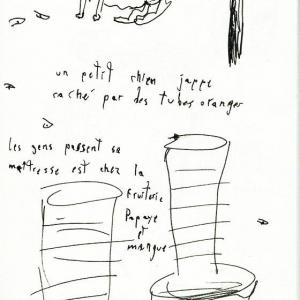 un petit chien jappe
caché par des tubes oranger
les gens passent sa
maîtresse est chez la
fruiterie
Papaye
et
mangue